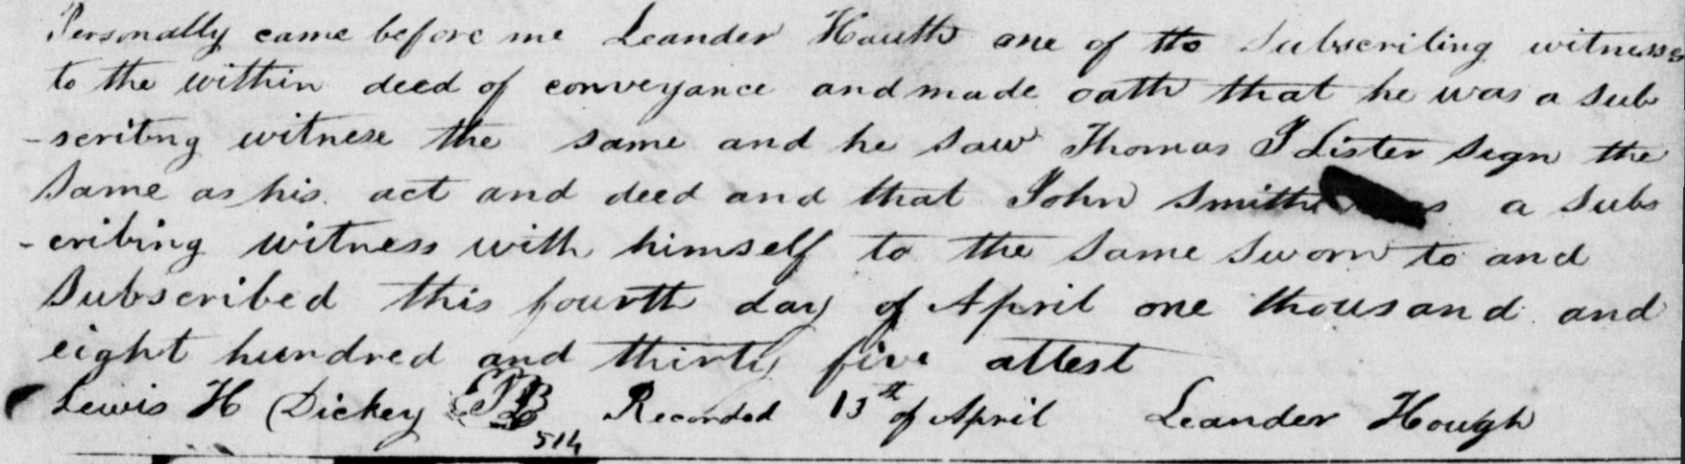 Personally came before me Leander Hauth one of the Subscribing witnesses
to the within deed of conveyance and made oath that he was a sub
-scribng witness the same and he saw Thomas J Lister sign the
Same as his act and deed and that John Smith a Subs
-cribing witness with himself to the Same Sworn to and
Subscribed this fourth day of April one thousand and
eight hundred and thirty five attest
Lewis H Dickey Recorded 13th of April Leander Hough
514